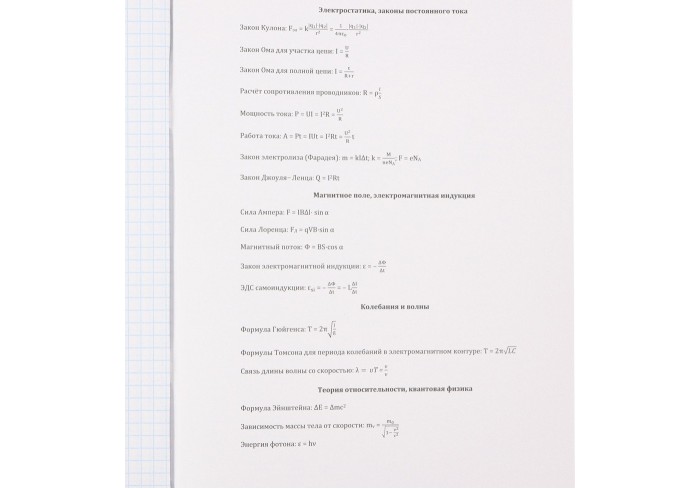 Электростатика, законы постоянного тока
Закон Кулона: Fэл = k|q₁|·|q₂|/r² = 1/4πεε₀ · |q₁|·|q₂|/r²
Закон Ома для участка цепи: I = U/R
Закон Ома для полной цепи: I = ε/R+r
Расчёт сопротивления проводников: R = ρ l/S
Мощность тока: P = UI = I²R = U²/R
Работа тока: A = Pt = IUt = I²Rt = U²/R t
Закон электролиза (Фарадея): m = kIΔt; k = M/neNₐ; F = eNₐ
Закон Джоуля–Ленца: Q = I²Rt
Магнитное поле, электромагнитная индукция
Сила Ампера: F = IBΔl· sin α
Сила Лоренца: Fл = qVB·sin α
Магнитный поток: Ф = BS·cos α
Закон электромагнитной индукции: ε = − ΔФ/Δt
ЭДС самоиндукции: εsi = − ΔФ/Δt = − L ΔI/Δt
Колебания и волны
Формула Гюйгенса: T = 2π √l/g
Формулы Томсона для периода колебаний в электромагнитном контуре: T = 2π√LC
Связь длины волны со скоростью: λ = υT = υ/ν
Теория относительности, квантовая физика
Формула Эйнштейна: ΔE = Δmc²
Зависимость массы тела от скорости: mᵥ = m₀/√1−v²/c²
Энергия фотона: ε = hν